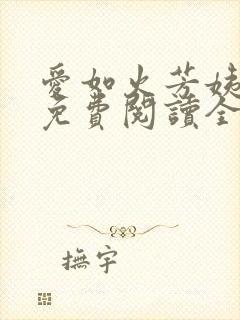 愛如火芳姨
免費閱讀全
撫宇